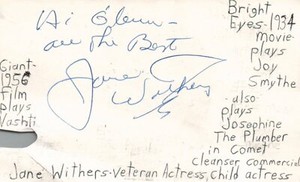 Hi Glenn -
all the Best
Jane Withers
Giant-
1956
film
plays
Vashti
Bright
Eyes-1934
movie-
plays
Joy
Smythe
also
plays
Josephine
The Plumber
in Comet
cleanser commercial
Jane Withers-Veteran Actress, child actress